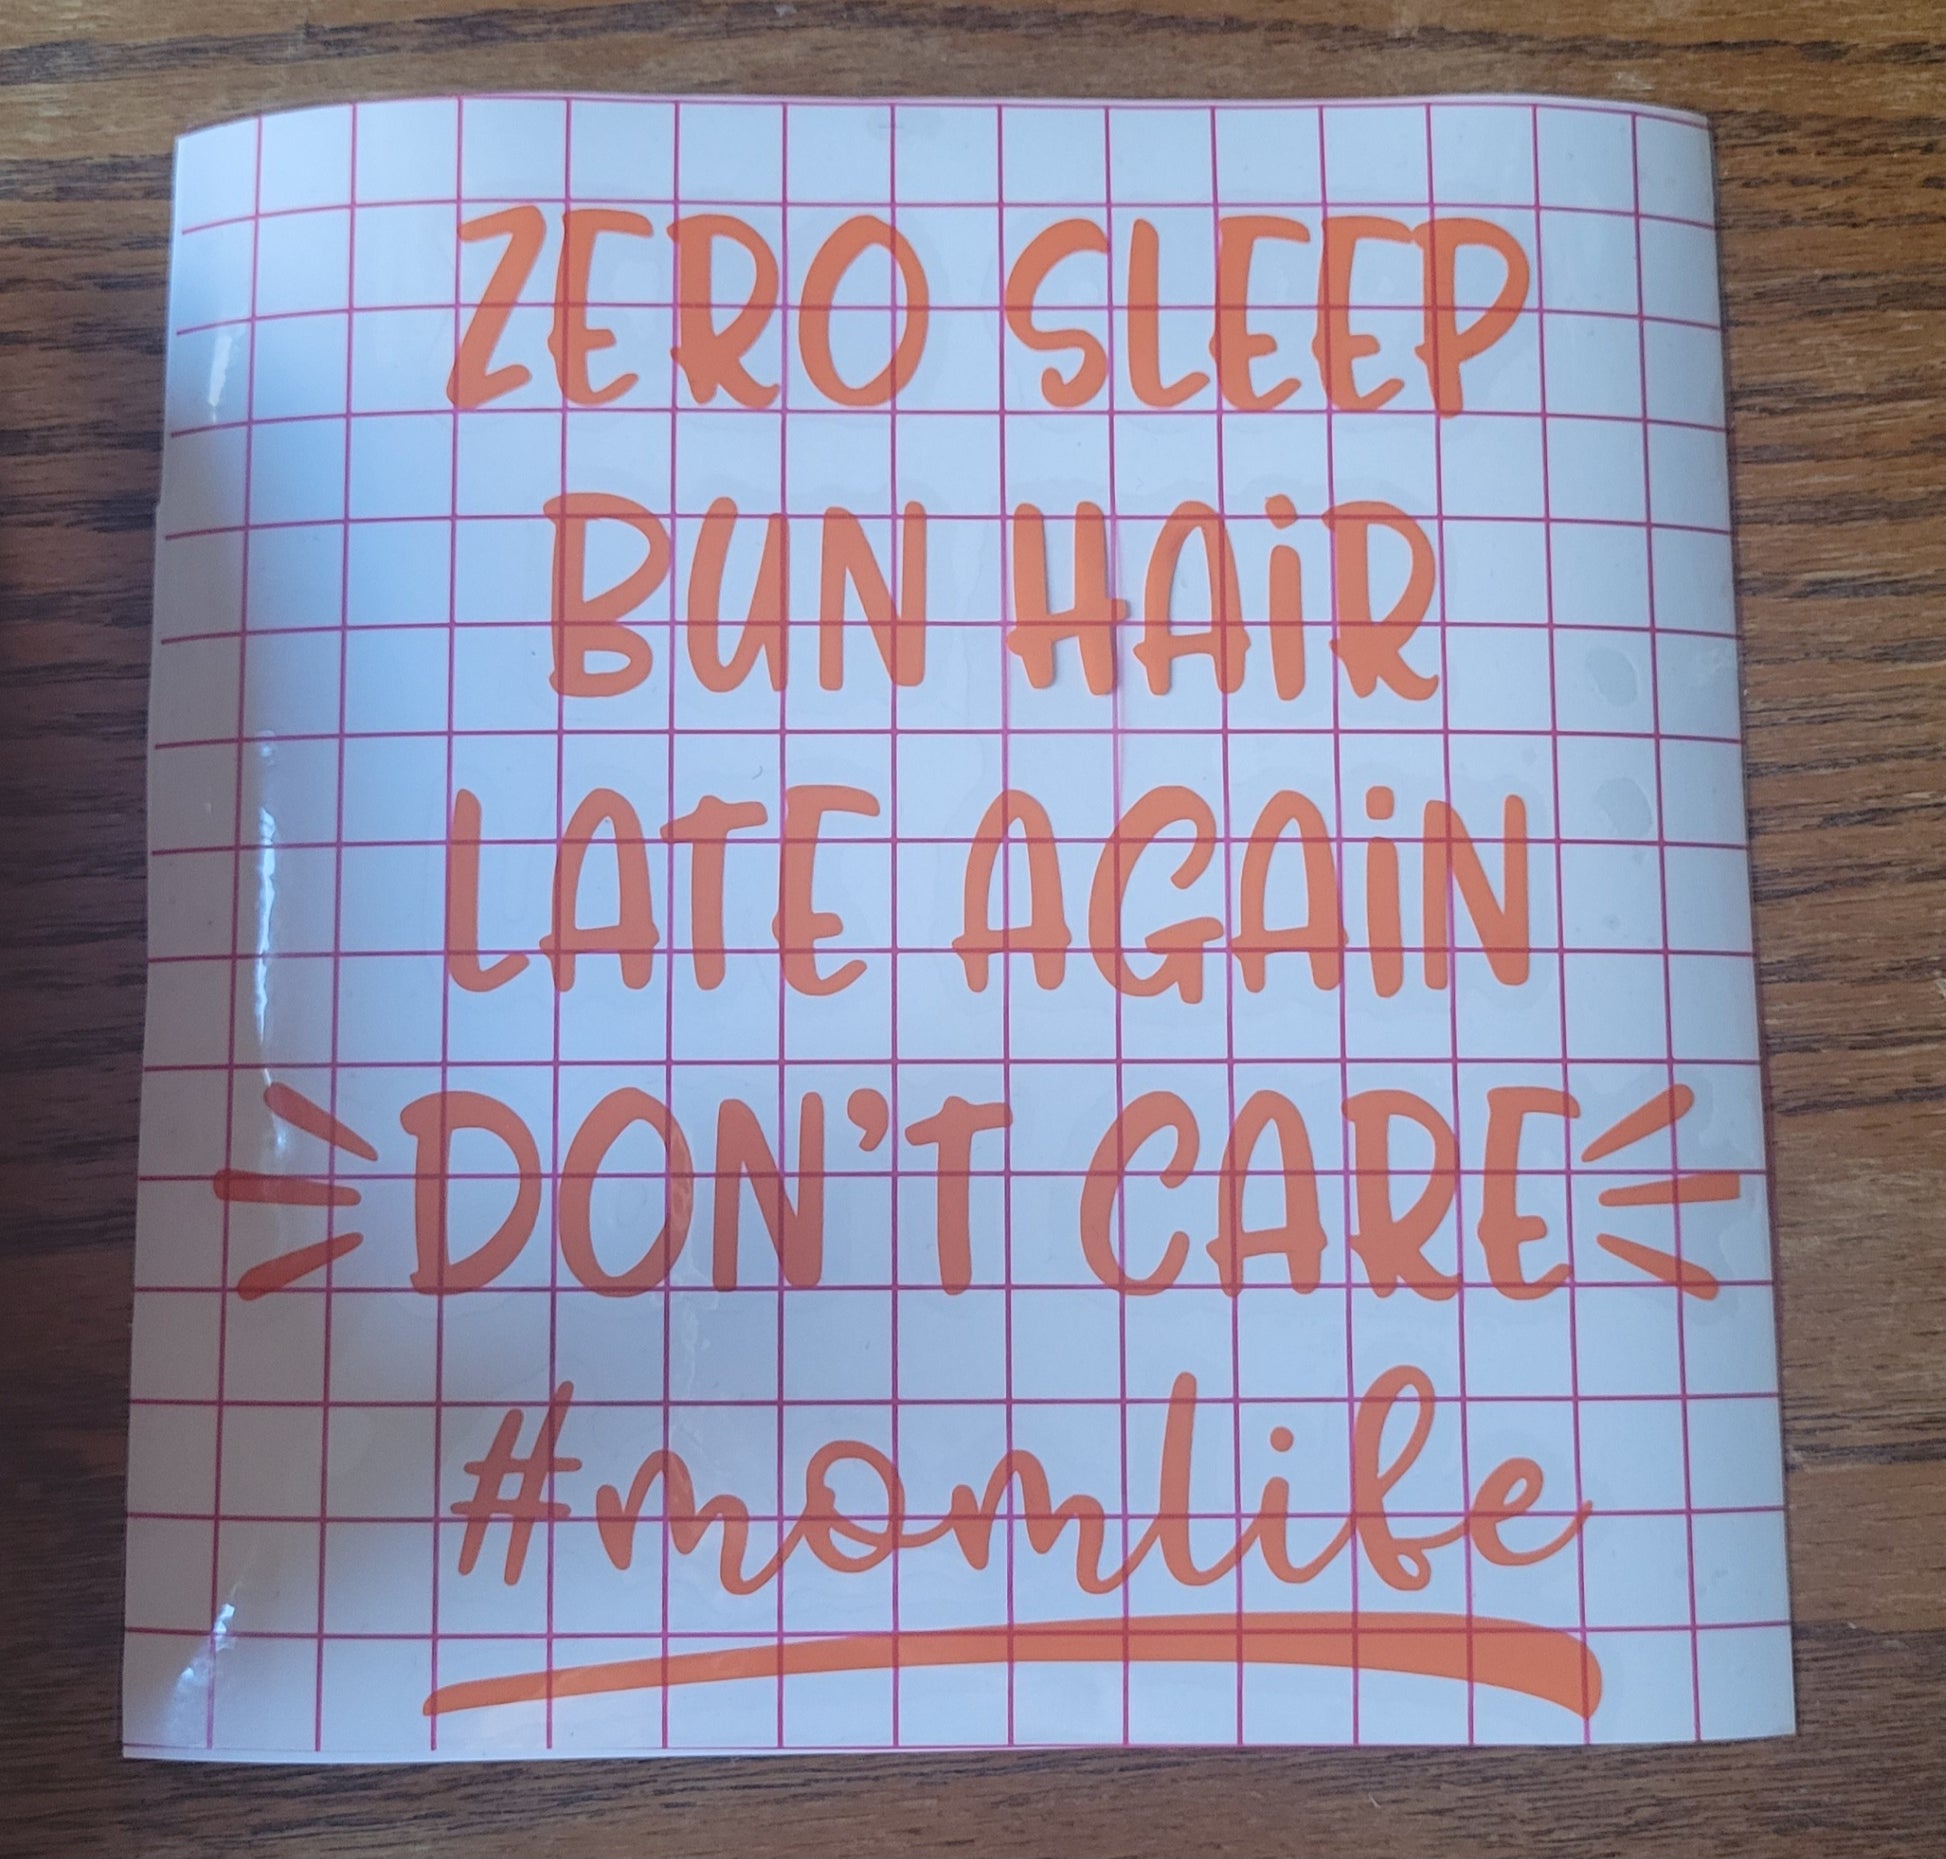 ZERO SLEEP
BUN HAiR
LATE AGAiN
DON'T CARE
#momlife